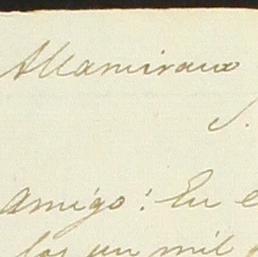 Altamirano
S.
amigo: En e
los un mil